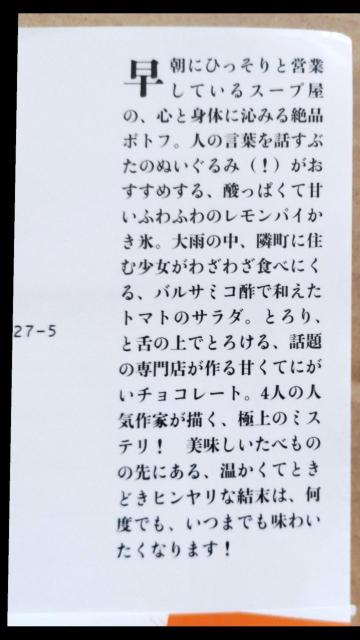 早朝にひっそりと営業
しているスープ屋
の、心と身体に沁みる絶品
ポトフ。人の言葉を話すぶ
たのぬいぐるみ（！）がお
すすめする、酸っぱくて甘
いふわふわのレモンパイか
き氷。大雨の中、隣町に住
む少女がわざわざ食べにく
る、バルサミコ酢で和えた
トマトのサラダ。とろり、
と舌の上でとろける、話題
の専門店が作る甘くてにが
いチョコレート。4人の人
気作家が描く、極上のミス
テリ！　美味しいたべもの
の先にある、温かくてとき
どきヒンヤリな結末は、何
度でも、いつまでも味わい
たくなります！
27-5